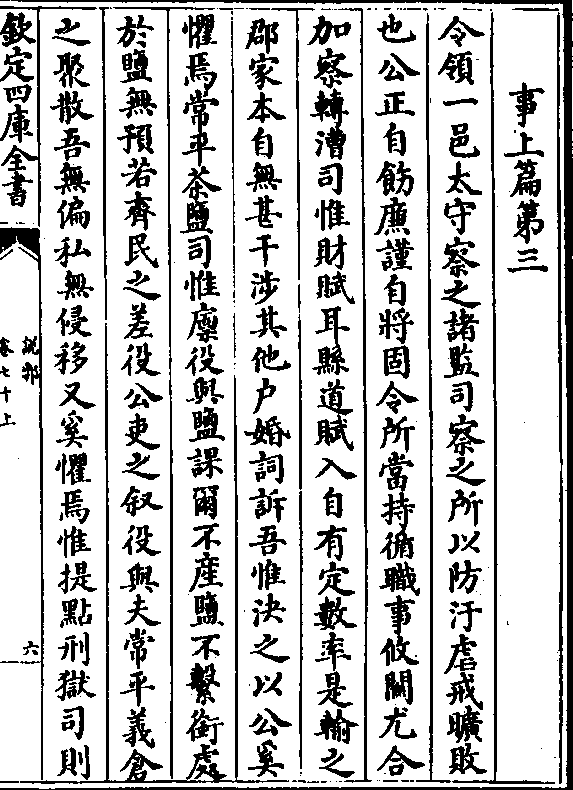 事上篇第三
令領一邑太守察之諸監司察之所以防汙虐戒曠敗
也公正自飭廉謹自將固令所當持循職事攸關尤合
加察轉漕司惟財賦耳縣道賦入自有定數率是輸之
郡家本自無甚干涉其他户婚詞訴吾惟決之以公奚
懼焉常平茶鹽司惟廩役與鹽課爾不産鹽不繫銜處
於鹽無預若齊民之差役公吏之叙役與夫常平義倉
之聚散吾無偏私無侵移又奚懼焉惟提點刑獄司則
欽定四庫全書
說郛
卷七十上
六